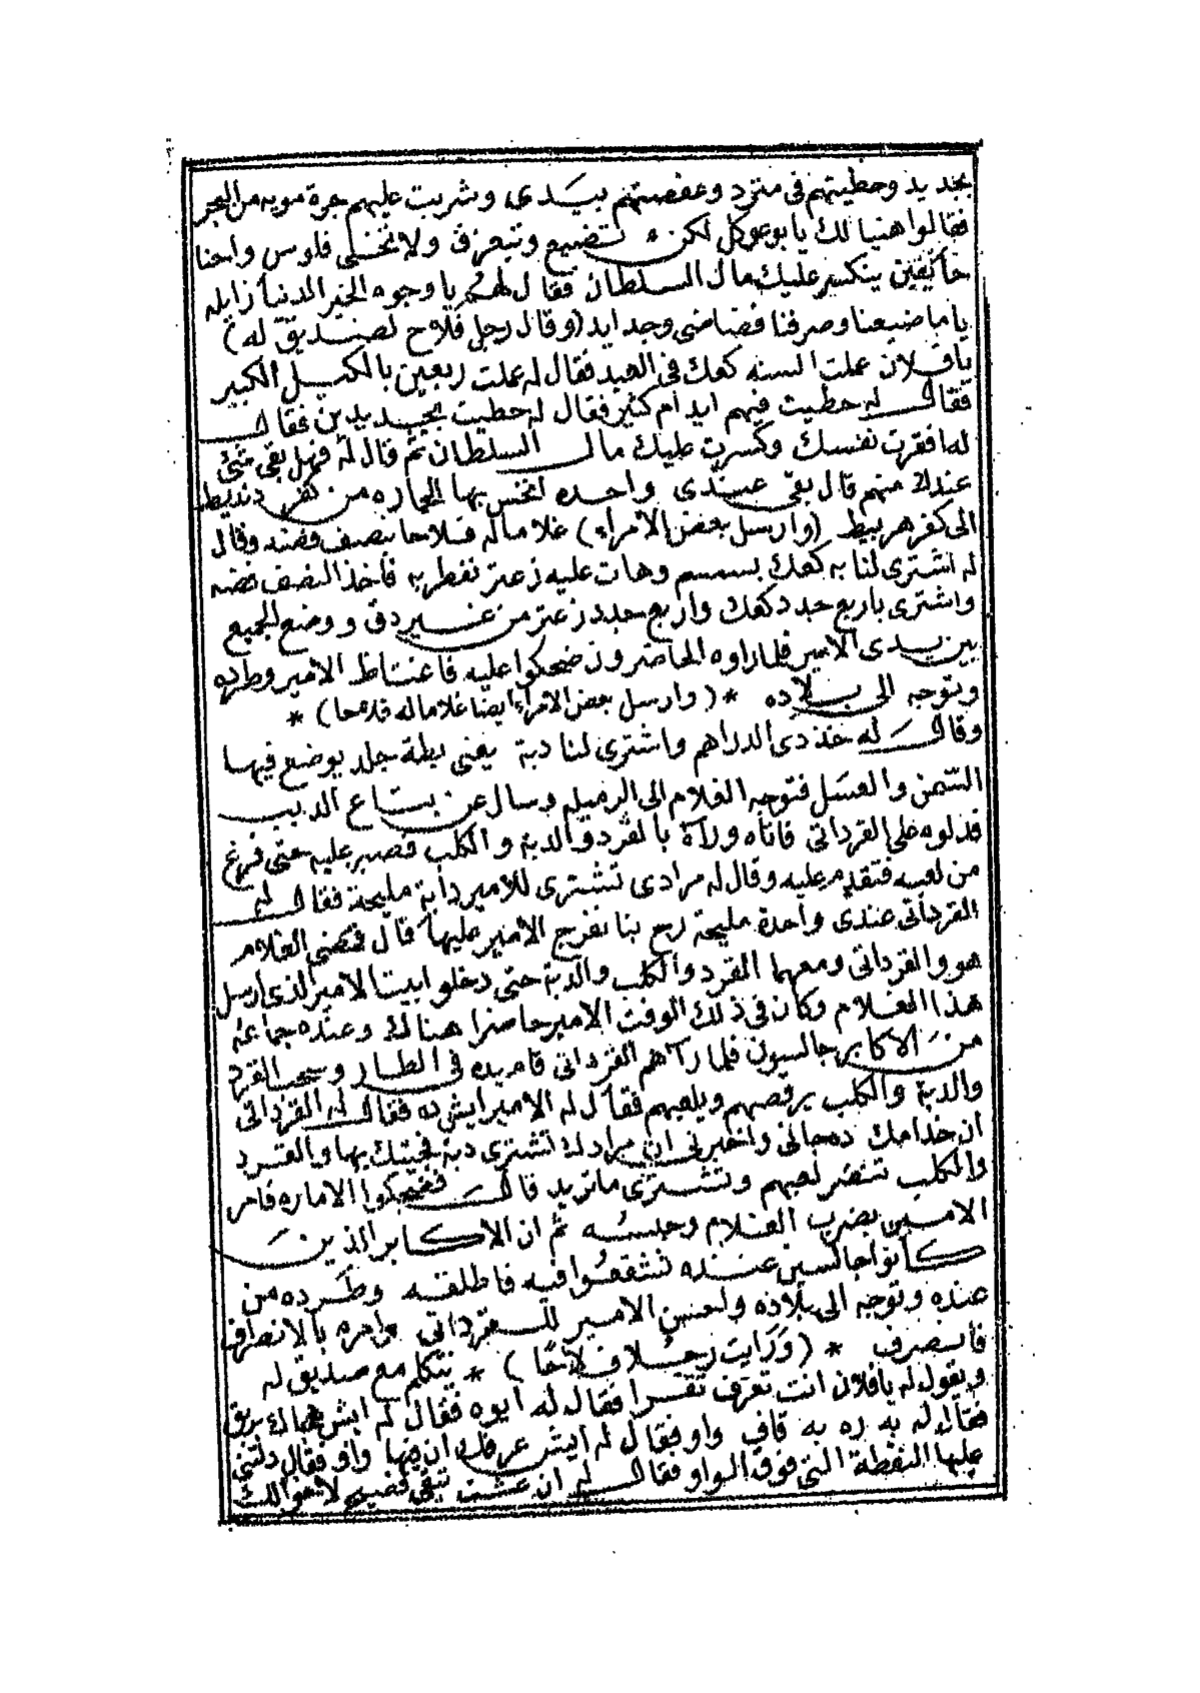 بجديد وحطيتهم فى متزد وعفصتهم بيدى وشربت عليهم جرة مويه من البحر
فقالوا هنيالك يابوعوكل لكن تضيع وتبعزق ولا تخلى فلوس واحنا
خايفين ينكسر عليك مال السلطان فقال لهم ياوجوه الخير الدنيا زايله
ياما ضيعنا وصرفنا فضا ضى وجدايد (وقال رجل فلاح لصديق له)
يافلان عملت السنه كعك فى العيد فقال له عملت ربعين بالكيل الكبير
فقال له حطيت فيهم ايدام كثير فقال له حطيت بجديدين فقال
له افقرت نفسك وكسرت عليك مال السلطان ثم قال له فهل بقى شئ
عندك منهم قال بقى عندى واحده انخس بها الحماره من كفر دندیط
الى كفر هربيط (وارسل بعض الامراء) غلاما له فلاحا بنصف فضه وقال
له اشترى لنا به كعك بسمسم وهات عليه زعتر نفطر به فاخذ النصف فضه
واشترى باربع جدد كعك واربع جدد زعتر من غير دق ووضع الجميع
بين يدى الامير فلما راوه الحاضرون ضحكوا عليه فاغتاظ الامير وطرده
وتوجه الى بلاده * (وارسل بعض الامراء ايضا غلاما له فلاحا) *
وقال له خذ دى الدراهم واشترى لنا دبة يعنى بطة جلد يوضع فيها
السمن والعسل فتوجه الغلام الى الرميله وسال عن بتاع الدبب
فدلوه على القرداتى فاتاه ورآه بالقرد والدبة والكلب فصبر عليه حتى فرغ
من لعبه فتقدم عليه وقال له مرادى تشترى للامير دابة مليحة فقال له
القرداتى عندى واحدة مليحة رح بنا نفرج الامير عليها قال فمضى الغلام
هو والقرداتى ومعهما القرد والكلب والدبة حتى دخلوا بيت الامير الذى ارسل
هذا الغلام وكان فى ذلك الوقت الامير حاضرا هناك وعنده جماعة
من الاكابر جالسون فلما رآهم القرداتى قام يده فى الطار وسحب القرد
والدبة والكلب يرقصهم ويلعبهم فقال له الامير ايش ده فقال له القرداتى
ان خدامك ده جانى واخبرنى ان مرادك تشترى دبة فجيتك بها وبالقرد
والكلب تنضر لعبهم وتشترى ما تريد قال فضحكوا الاماره فامر
الامير بضرب الغلام وحبسه ثم ان الاكابر الذين
كانوا جالسين عنده تشفعوا فيه فاطلقه وطرده من
عنده وتوجه الى بلاده الامير للقرداتى وامره بالانصراف
فانصرف * (ورايت رجلا فلاحا) * يتكلم مع صديق له
ويقول له يافلان انت تعرف تقرا فقال له ايوه فقال له ايش
فقال له به ره به قاف واو فقال له ايش عرفك ان فيها واو فقال دلتنى
عليها النقطة التى فوق الواو فقال له ان عشت تبقى فضيه لاخوالك